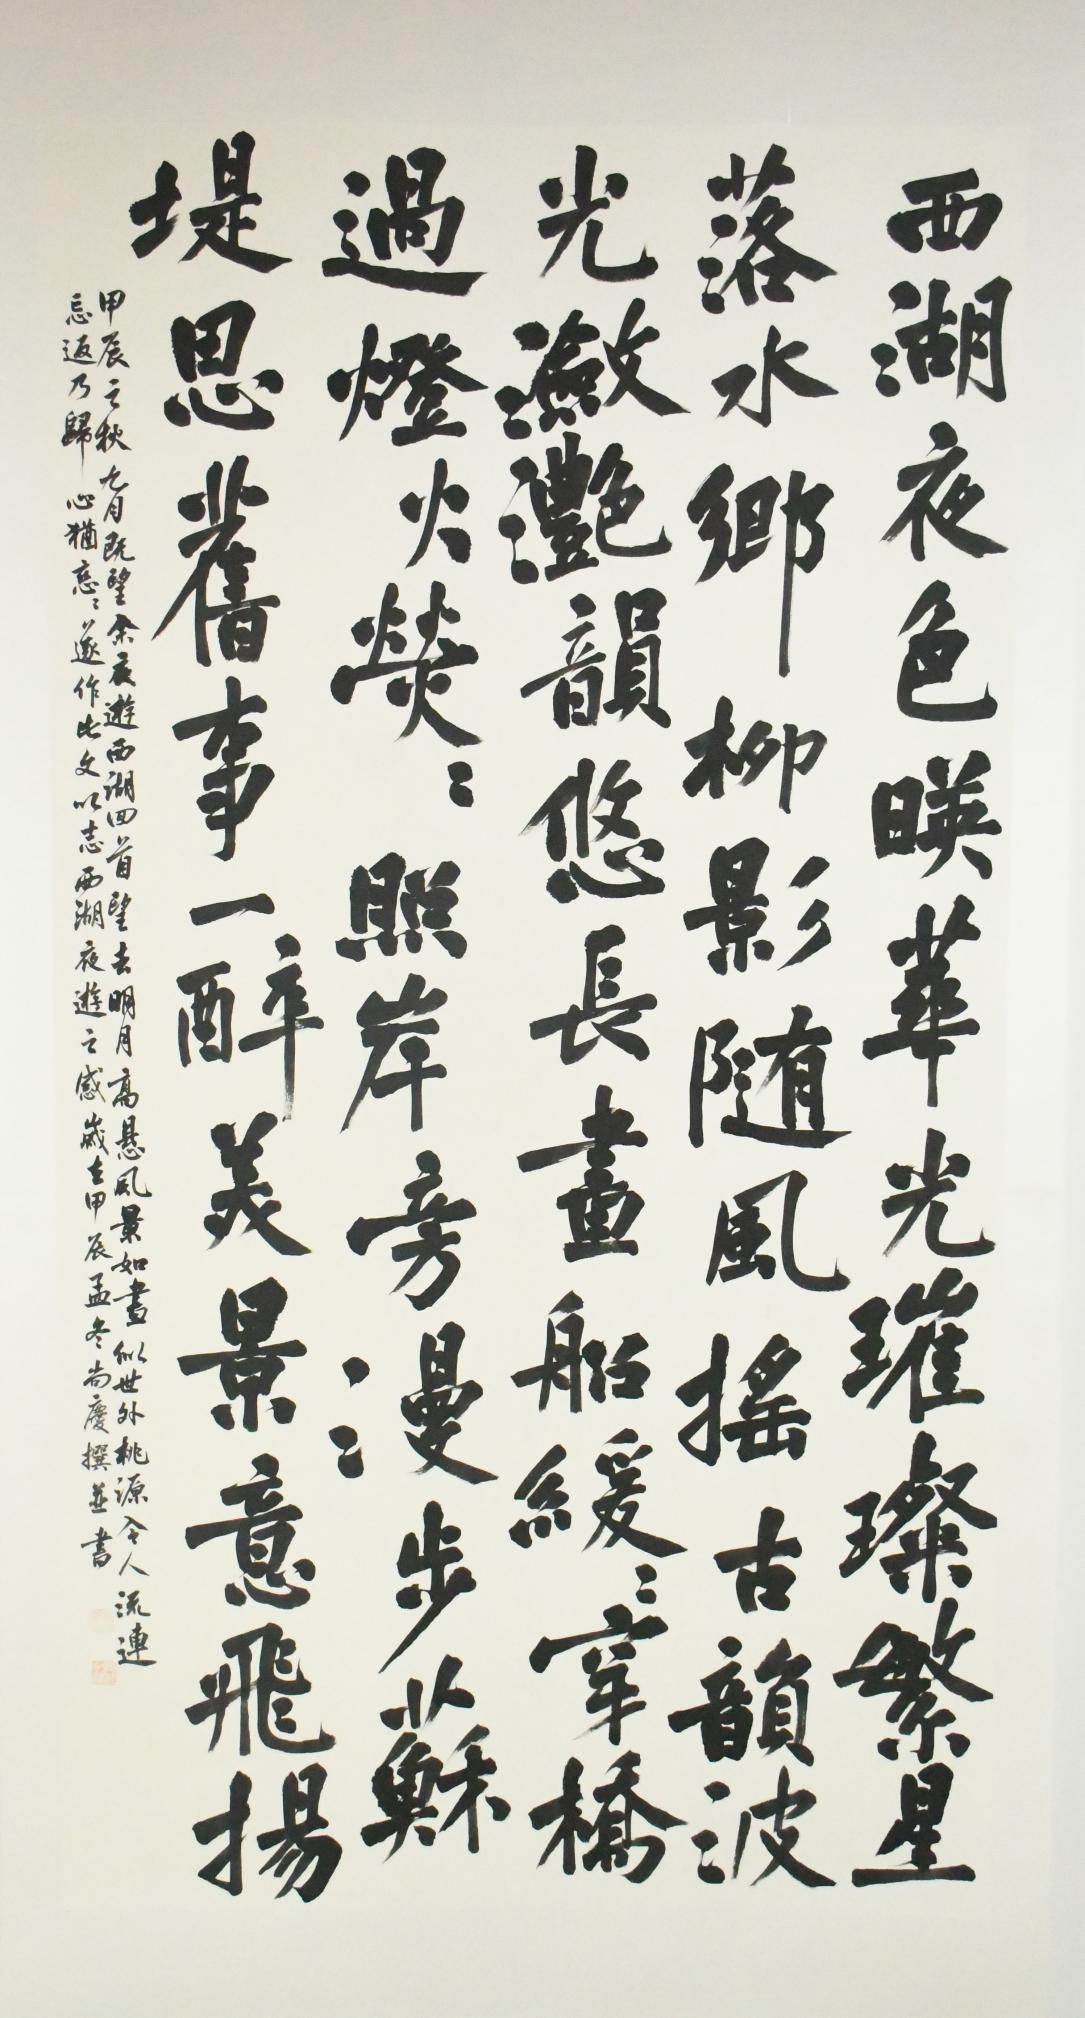 西湖夜色暎華光璀璨繁星
落水鄉柳影随風搖古韻波
光瀲灩韻悠長畫船緩〻穿橋
過燈火熒〻照岸旁漫步蘇
堤思舊事一醉美景意飛揚
甲辰之秋九月既望余夜遊西湖回首望去明月高懸風景如畫似世外桃源令人流連
忘返乃歸心猶恋〻遂作此文以志西湖夜遊之感歲在甲辰孟冬尚慶撰並書